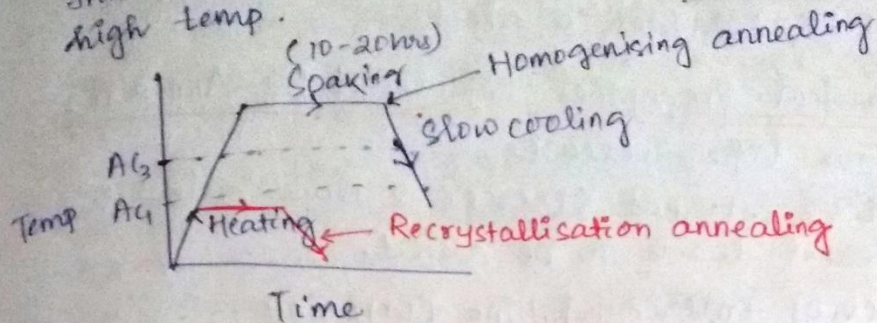 high temp.
(10-20hrs)
Soaking
Homogenising annealing
Slow cooling
AC3
Temp AC1
Heating
Recrystallisation annealing
Time